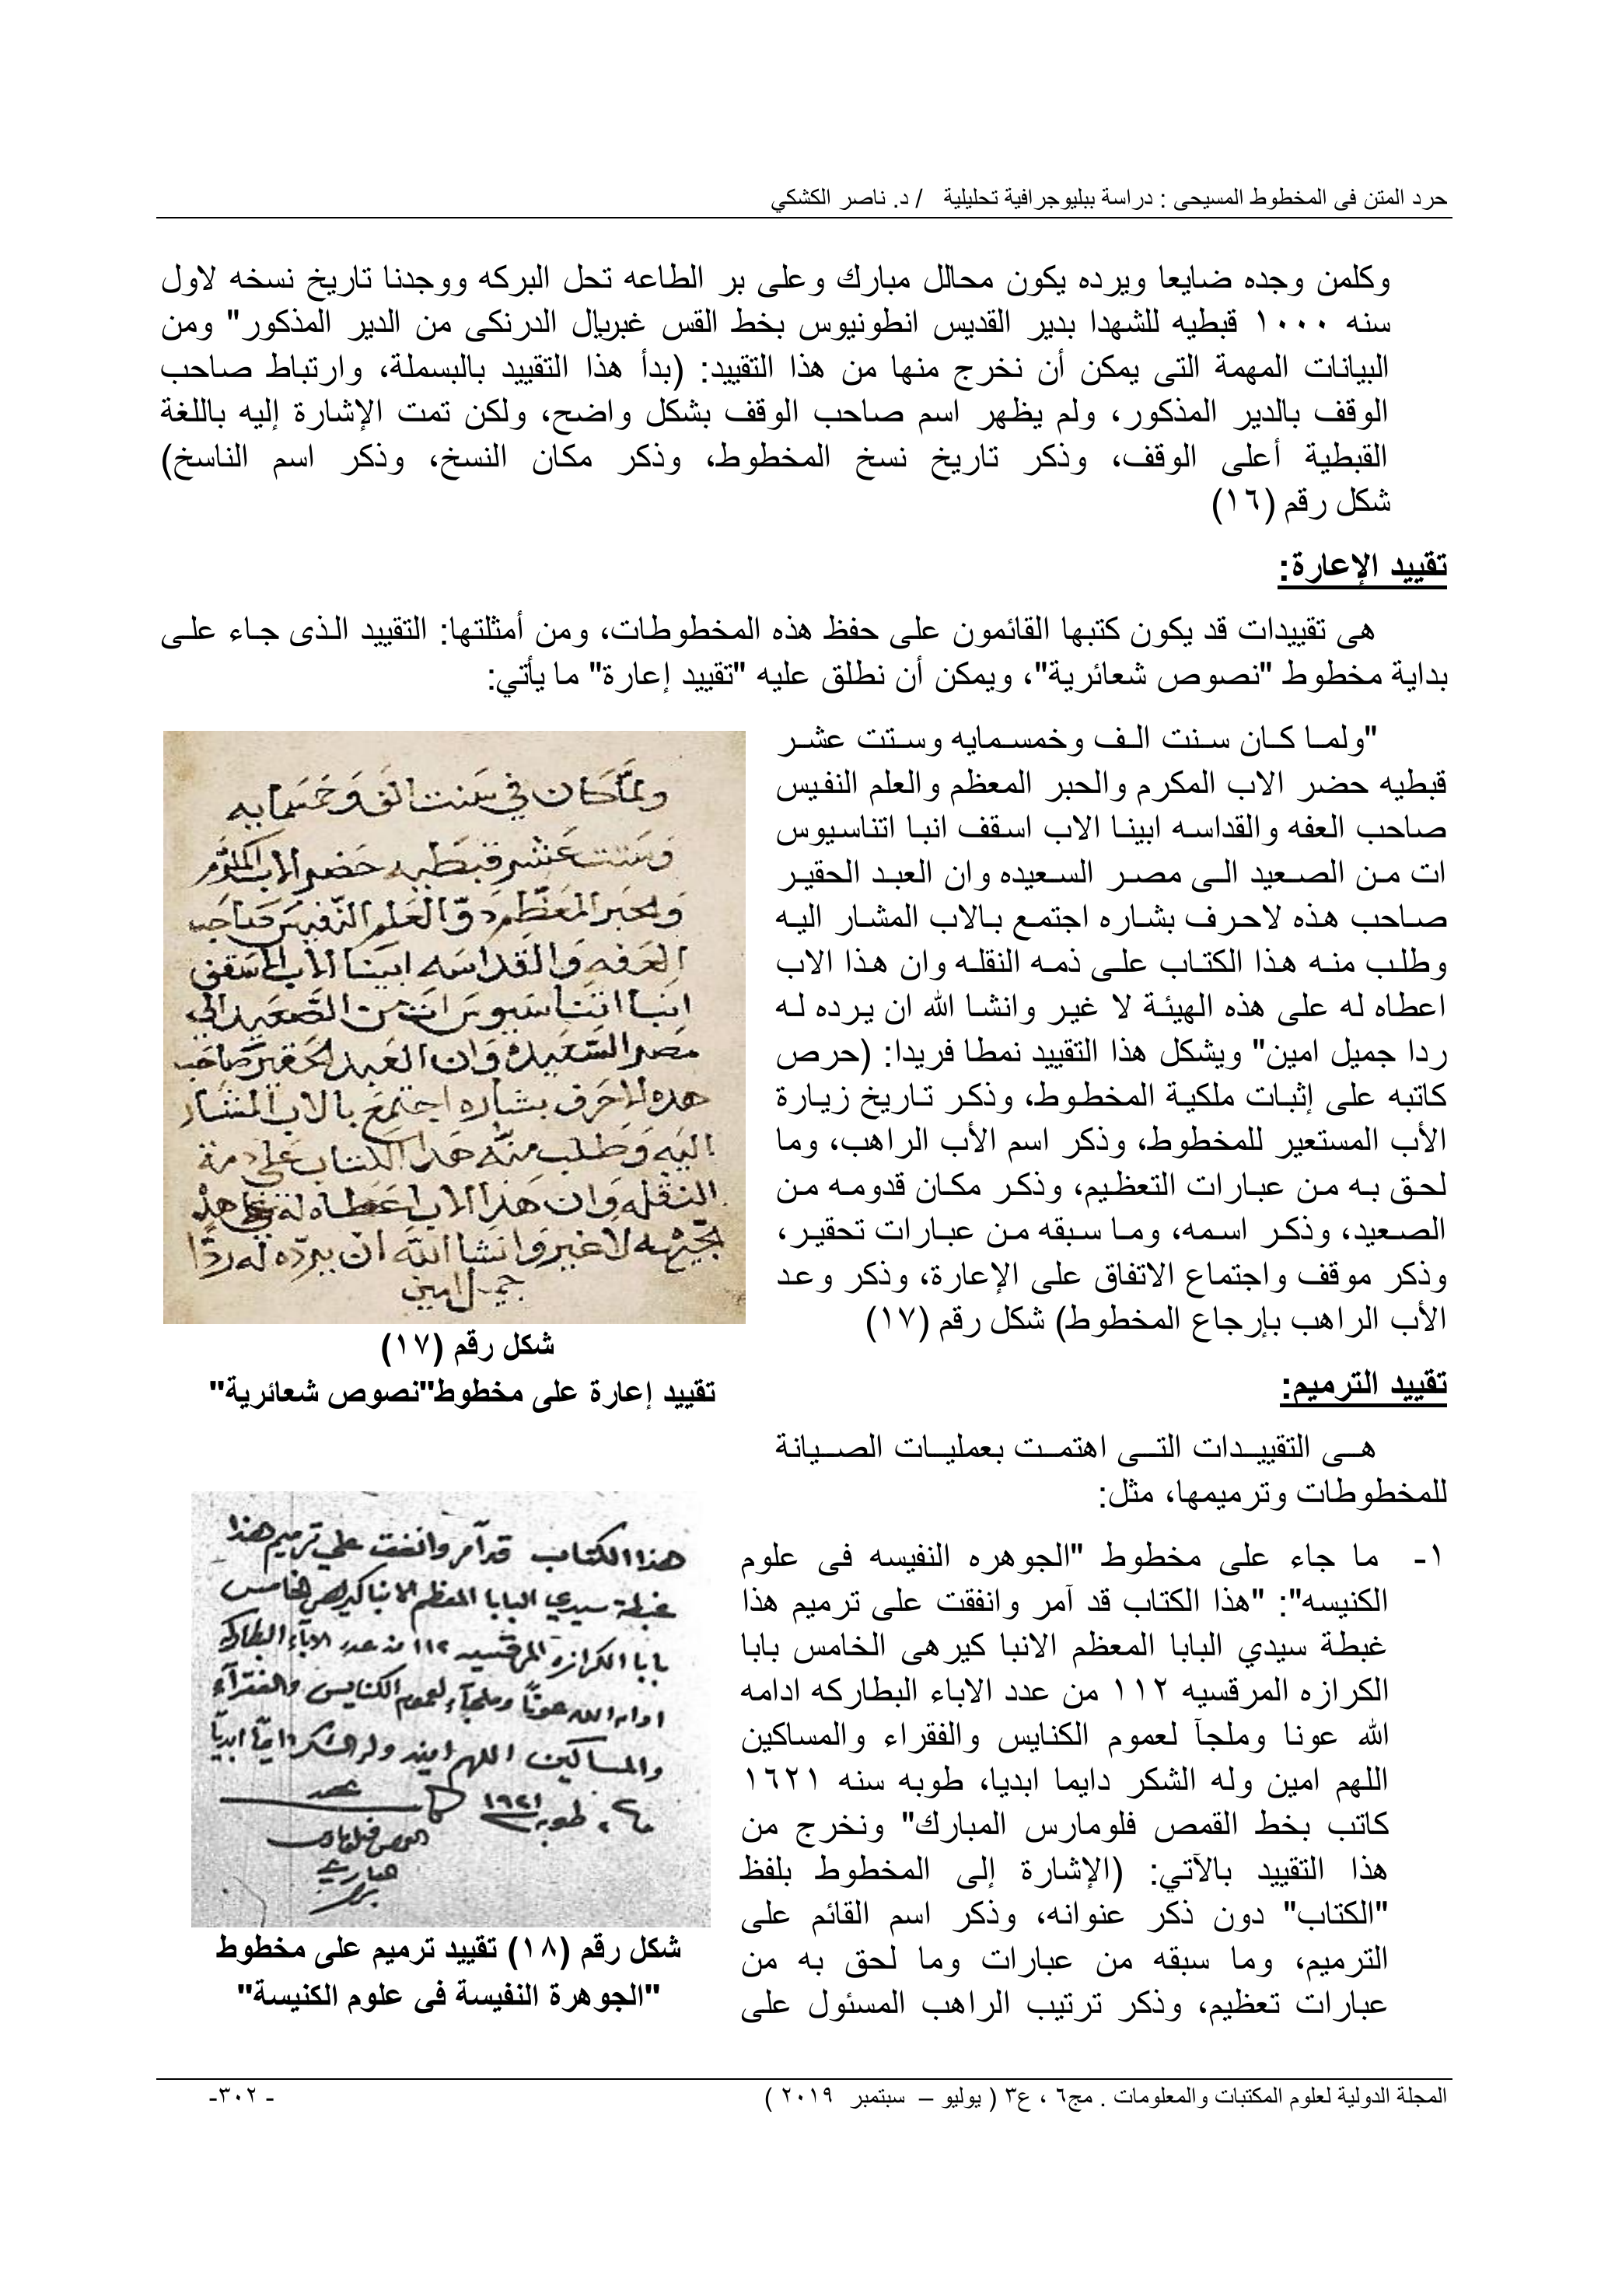 حرد المتن فى المخطوط المسيحى : دراسة ببليوجرافية تحليلية / د. ناصر الكشكي
وكلمن وجده ضايعا ويرده يكون محالل مبارك وعلى بر الطاعه تحل البركه ووجدنا تاريخ نسخه لاول
سنه ١٠٠٠ قبطيه للشهدا بدير القديس انطونيوس بخط القس غبريال الدرنكى من الدير المذكور" ومن
البيانات المهمة التى يمكن أن نخرج منها من هذا التقييد: (بدأ هذا التقييد بالبسملة، وارتباط صاحب
الوقف بالدير المذكور، ولم يظهر اسم صاحب الوقف بشكل واضح، ولكن تمت الإشارة إليه باللغة
القبطية أعلى الوقف، وذكر تاريخ نسخ المخطوط، وذكر مكان النسخ، وذكر اسم الناسخ)
شكل رقم (١٦)
تقييد الإعارة:
هى تقييدات قد يكون كتبها القائمون على حفظ هذه المخطوطات، ومن أمثلتها: التقييد الذى جاء على
بداية مخطوط "نصوص شعائرية"، ويمكن أن نطلق عليه "تقييد إعارة" ما يأتي:
"ولما كان سنت الف وخمسمايه وستت عشر
قبطيه حضر الاب المكرم والحبر المعظم والعلم النفيس
صاحب العفه والقداسه ابينا الاب اسقف انبا اتناسيوس
ات من الصعيد الى مصر السعيده وان العبد الحقير
صاحب هذه لاحرف بشاره اجتمع بالاب المشار اليه
وطلب منه هذا الكتاب على ذمه النقله وان هذا الاب
اعطاه له على هذه الهيئة لا غير وانشا الله ان يرده له
ردا جميل امين" ويشكل هذا التقييد نمطا فريدا: (حرص
كاتبه على إثبات ملكية المخطوط، وذكر تاريخ زيارة
الأب المستعير للمخطوط، وذكر اسم الأب الراهب، وما
لحق به من عبارات التعظيم، وذكر مكان قدومه من
الصعيد، وذكر اسمه، وما سبقه من عبارات تحقير،
وذكر موقف واجتماع الاتفاق على الإعارة، وذكر وعد
الأب الراهب بإرجاع المخطوط) شكل رقم (١٧)
ولما كان في سنت الف وخمسمايه
وستت عشر قبطيه حضر الاب المكرم
والحبر المعظم العلم النفيس صاحب
العفه والقداسه ابينا الاب الاسقف
انبا اتناسيوس ات من الصعيد الي
مصر السعيده وان العبد الحقير صاحب
هذه لاحرف بشاره اجتمع بالاب المشار
اليه وطلب منه هذا الكتاب علي ذمة
النقله وان هذا الاب اعطاه له علي هذه
لا غير وانشا الله ان يرده له ردا
جميل امين
شكل رقم (١٧)
تقييد إعارة على مخطوط"نصوص شعائرية"
تقييد الترميم:
هى التقييدات التى اهتمت بعمليات الصيانة
للمخطوطات وترميمها، مثل:
١- ما جاء على مخطوط "الجوهره النفيسه فى علوم
الكنيسه": "هذا الكتاب قد آمر وانفقت على ترميم هذا
غبطة سيدي البابا المعظم الانبا كيرهى الخامس بابا
الكرازه المرقسيه ١١٢ من عدد الاباء البطاركه ادامه
الله عونا وملجآ لعموم الكنايس والفقراء والمساكين
اللهم امين وله الشكر دايما ابديا، طوبه سنه ١٦٢١
كاتب بخط القمص فلومارس المبارك" ونخرج من
هذا التقييد بالآتي: (الإشارة إلى المخطوط بلفظ
"الكتاب" دون ذكر عنوانه، وذكر اسم القائم على
الترميم، وما سبقه من عبارات وما لحق به من
عبارات تعظيم، وذكر ترتيب الراهب المسئول على
هذا الكتاب قد آمر وانفقت علي ترميم هذا
غبطة سيدي البابا المعظم الانبا كيرلص الخامس
بابا الكرازه المرقسيه ١١٢ من عدد الآباء البطاركه
ادامه الله عونا وملجآء لعموم الكنايس والفقرآء
والمساكين اللهم امين وله الشكر دايمًا ابديًا
طوبه ١٦٢١
القمص
شكل رقم (١٨) تقييد ترميم على مخطوط
"الجوهرة النفيسة فى علوم الكنيسة"
المجلة الدولية لعلوم المكتبات والمعلومات . مج٦ ، ع٣ ( يوليو – سبتمبر ٢٠١٩ )
- ٣٠٢-